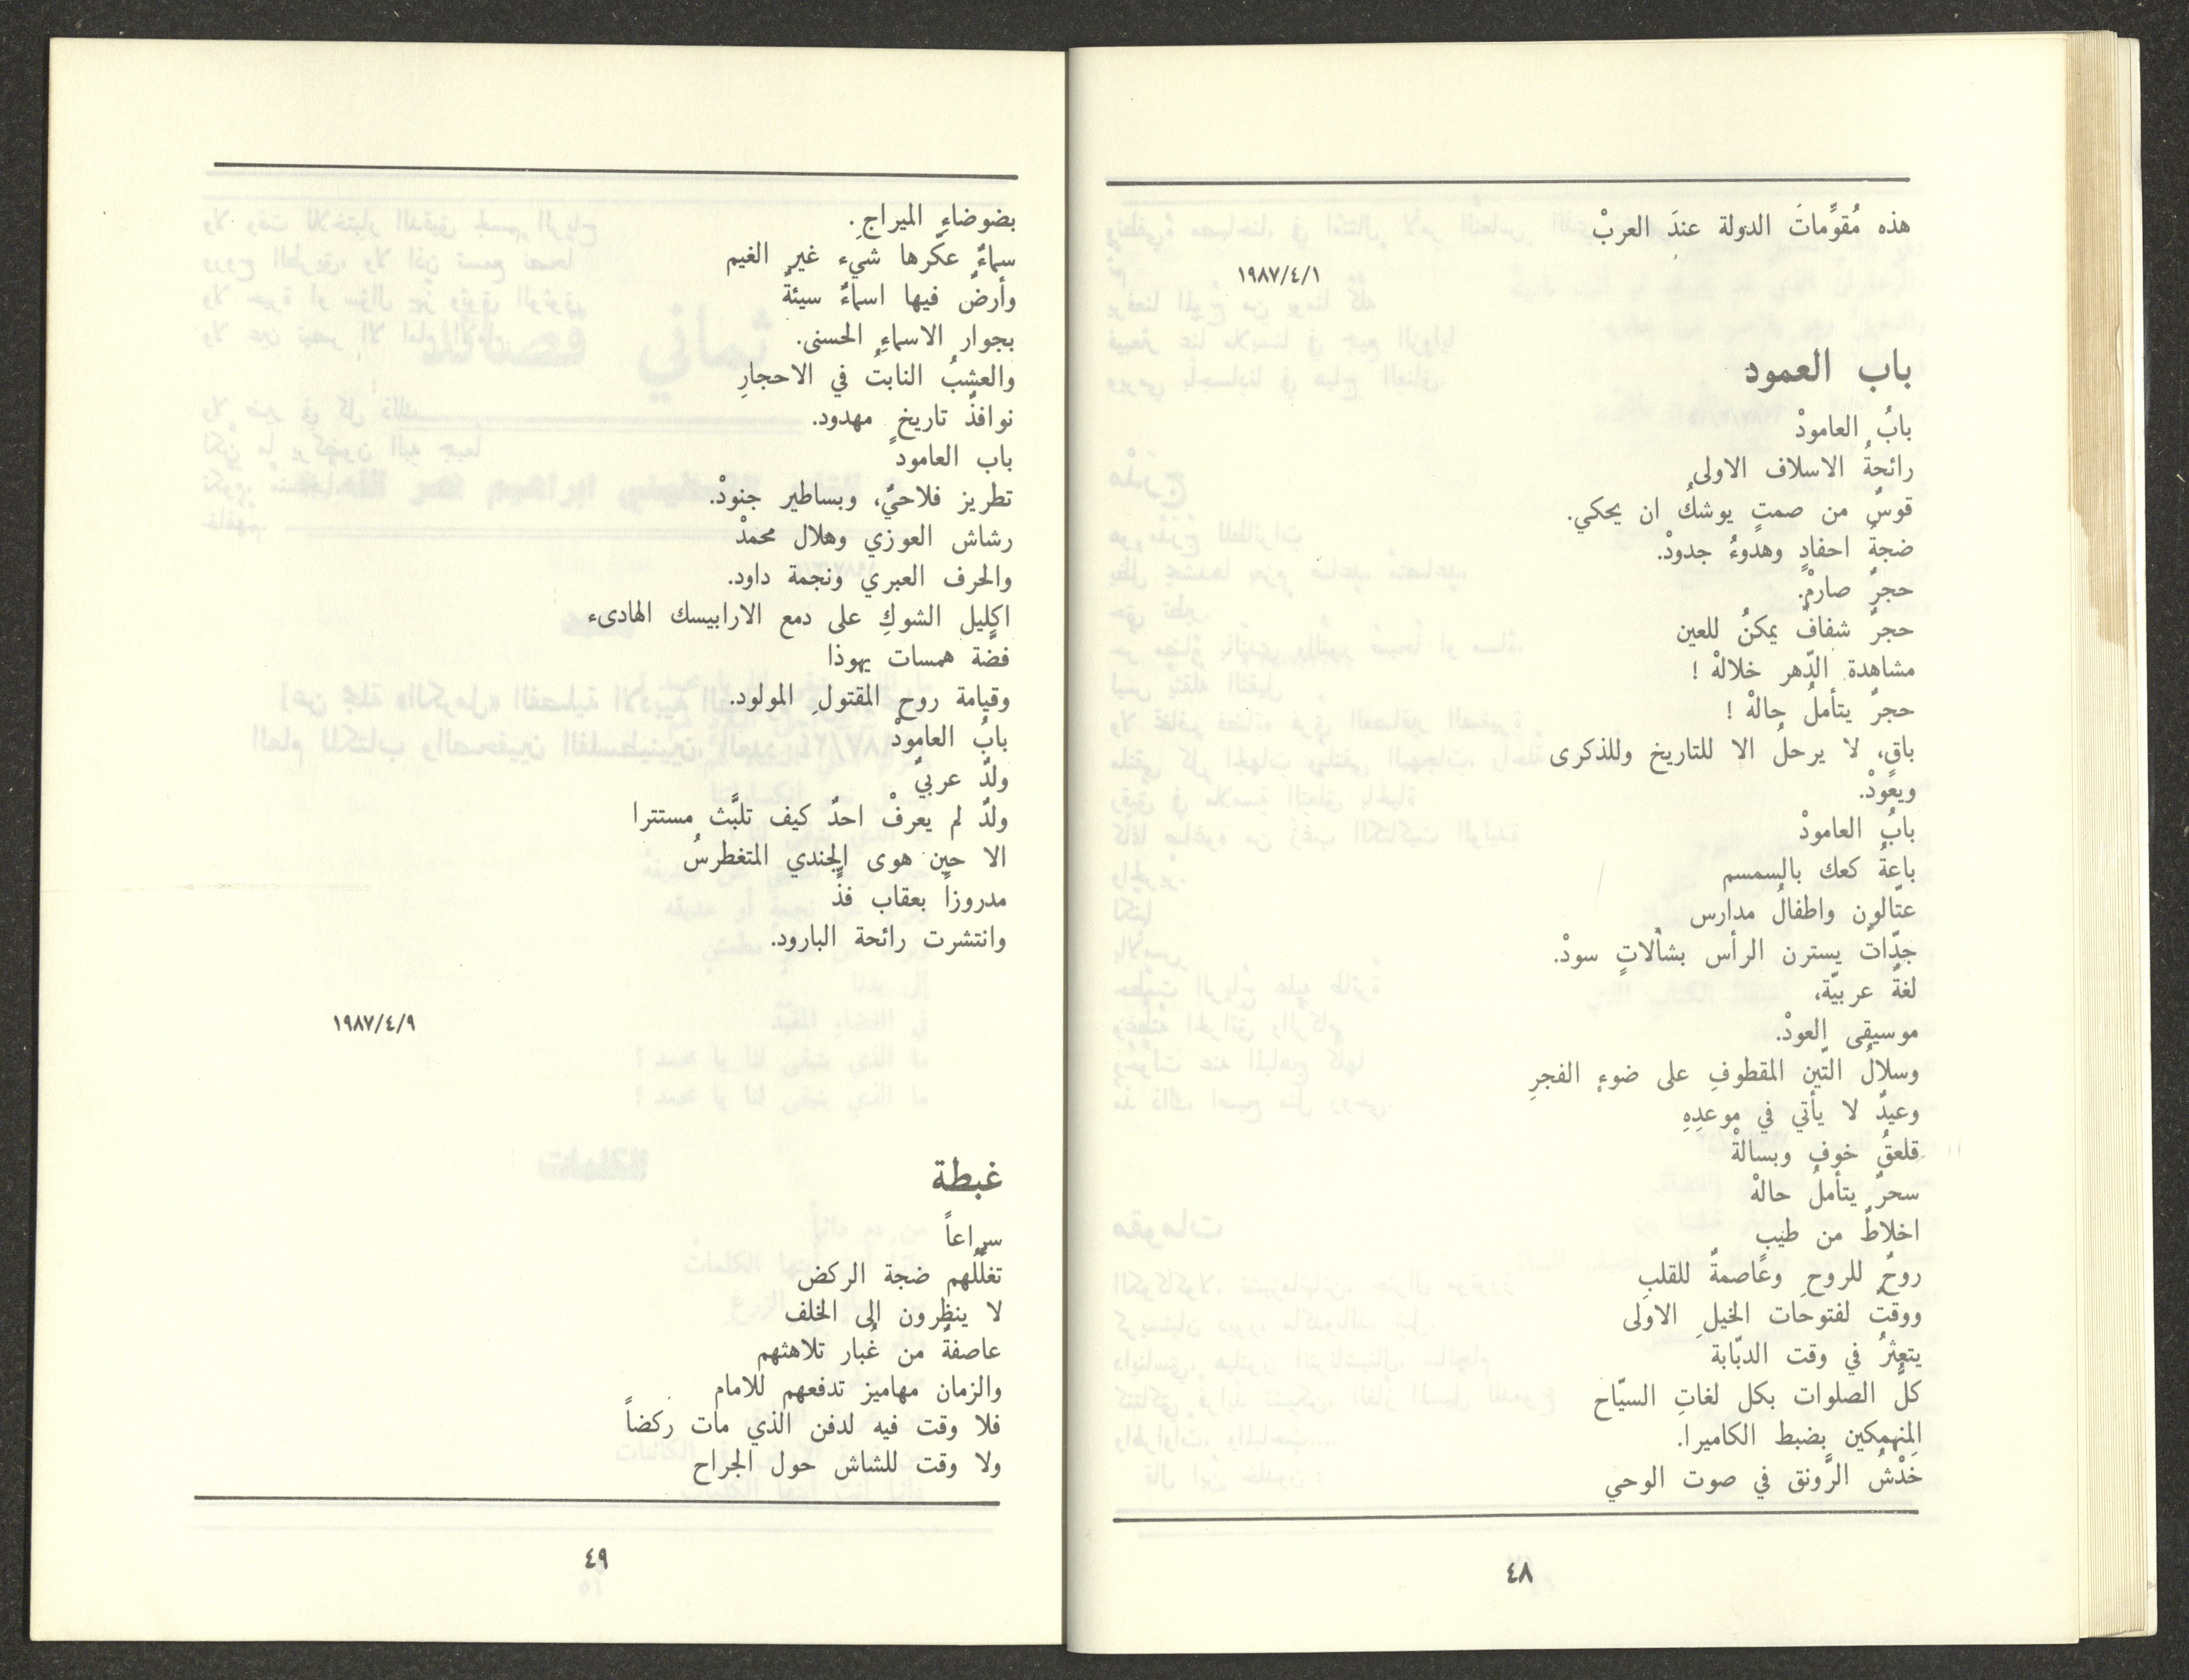 هذه مُقوِّماتَ الدولة عندَ العربْ
١٩٨٧/٤/١
باب العمود
بابُ العامودْ
رائحةُ الاسلاف الاولى
قوسٌ من صمتٍ يوشكُ ان يحكي.
ضجةُ احفادٍ وهدوءُ جدودْ.
حجرٌ صارمْ.
حجرٌ شفافٌ يمكنُ للعين
مشاهدة الدّهر خلالهْ !
حجرٌ يتأملُ حالهْ !
باقٍ، لا يرحلُ الا للتاريخ وللذكرى
ويعودْ.
بابُ العامودْ
باعةُ كعك بالسمسم
عتّالون واطفالُ مدارس
جدّاتٌ يسترن الرأس بشالاتٍ سودْ.
لغةٌ عربيّة،
موسيقى العودْ.
وسلالُ التّين المقطوفِ على ضوءِ الفجرِ
وعيدٌ لا يأتي في موعدِهِ
قلعقُ خوفٍ وبسالةْ
سحرٌ يتأملُ حالهْ
اخلاطٌ من طيبٍ
روحٌ للروحِ وعاصمةٌ للقلبِ
ووقتٌ لفتوحات الخيلِ الاولى
يتعثرُ في وقت الدبّابة
كلُّ الصلوات بكل لغاتِ السيّاح
المنهمكين بضبط الكاميرا.
خَدْشُ الرَّونق في صوت الوحي
٤٨
بضوضاءِ الميراجِ.
سماءٌ عكّرها شيء غير الغيم
وأرضٌ فيها اسماءٌ سيئةٌ
بجوار الاسماءِ الحسنى.
والعشبُ النابتُ في الاحجارِ
نوافذُ تاريخٍ مهدود.
باب العامود
تطريز فلاحيٌ، وبساطير جنودْ.
رشاش العوزي وهلال محمدْ
والحرف العبري ونجمة داود.
اكليل الشوكِ على دمع الارابيسك الهادىء
فضّة همسات يهوذا
وقيامة روح المقتولِ المولود.
بابُ العامودْ
ولدٌ عربيٌ
ولدٌ لم يعرفْ احدٌ كيف تلبَّث مستترا
الا حين هوى الجندي المتغطرسُ
مدروزاً بعقاب فذٍّ
وانتشرت رائحة البارود.
١٩٨٧/٤/٩
غبطة
سراعاً
تغلّلهم ضجة الركض
لا ينظرون الى الخلف
عاصفةٌ من غُبار تلاهثهم
والزمان مهاميز تدفعهم للامام
فلا وقت فيه لدفن الذي مات ركضاً
ولا وقت للشاش حول الجراح
٤٩